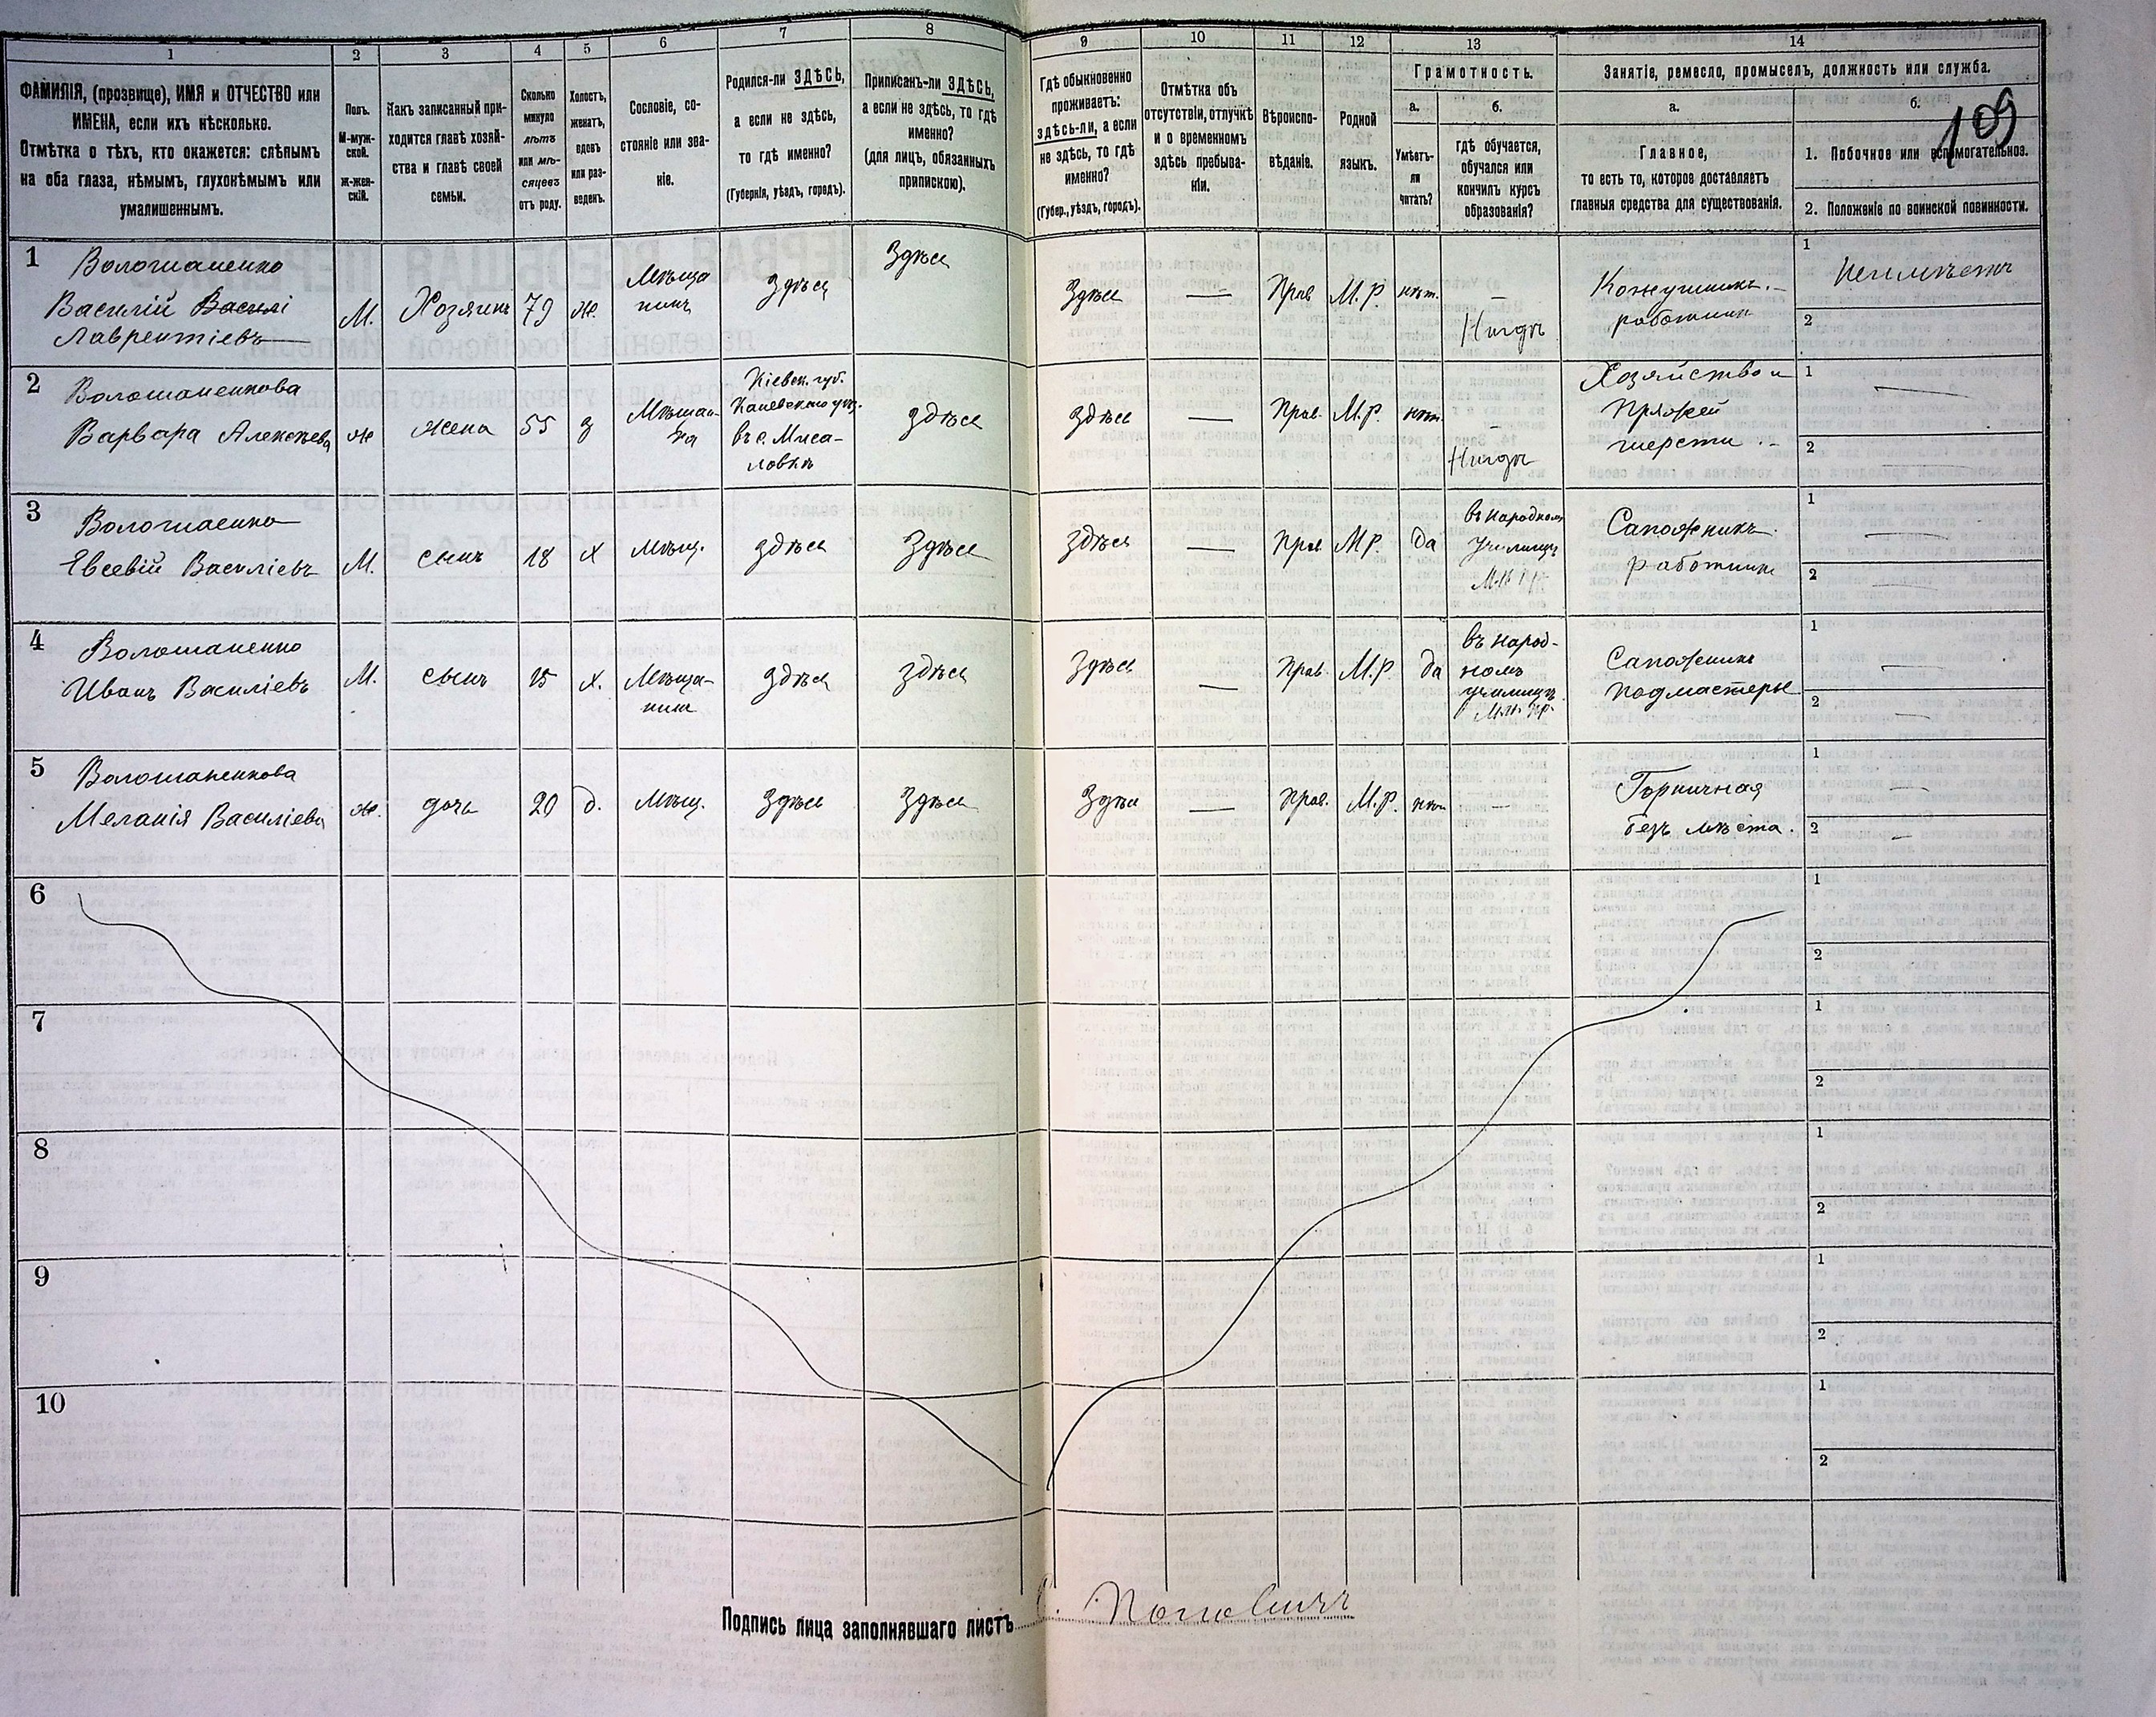 1 2 3 4 5 6 7 8 9 10 11 12 13 14
ФАМИЛІЯ, (прозвище), ИМЯ и ОТЧЕСТВО или
ИМЕНА, если ихъ нѣсколько.
Отмѣтка о тѣхъ, кто окажется: слѣпымъ
на оба глаза, нѣмымъ, глухонѣмымъ или
умалишеннымъ.
Полъ.
М-муж-
ской.
Ж-жен-
скій.
Какъ записанный при-
ходится главѣ хозяй-
ства и главѣ своей
семьи.
Сколько
минуло
лѣтъ
или мѣ-
сяцевъ
отъ роду.
Холостъ,
женатъ,
вдовъ
или раз-
веденъ.
Сословіе, со-
стояніе или зва-
ніе.
Родился-ли ЗДѢСЬ,
а если не здѣсь,
то гдѣ именно?
(Губернія, уѣздъ, городъ).
Приписанъ-ли ЗДѢСЬ,
а если не здѣсь, то гдѣ
именно?
(для лицъ, обязанныхъ
припискою).
Гдѣ обыкновенно
проживаетъ:
здѣсь-ли, а если
не здѣсь, то гдѣ
именно?
(Губер., уѣздъ, городъ).
Отмѣтка объ
отсутствіи, отлучкѣ
и о временномъ
здѣсь пребыва-
ніи.
Вѣроиспо-
вѣданіе.
Родной
языкъ.
Грамотность.
а.
Умѣетъ-
ли
читать?
б.
гдѣ обучается,
обучался или
кончилъ курсъ
образованія?
Занятіе, ремесло, промыселъ, должность или служба.
а.
Главное,
то есть то, которое доставляетъ
главныя средства для существованія.
б.
109
1. Побочное или вспомогательное.
2. Положеніе по воинской повинности.
1
Волошаненко
Василій Василі
Лаврентіевъ
М.
Хозяинъ
79
ж.
Мѣща
нинъ
Здѣсь
Здѣсь
Здѣсь
—
Прав
М.Р.
нѣт.
–
Нигдѣ
Кожушникъ.–
работник
1
Неимѣетъ
2
2
Волошаненкова
Варвара Алексѣева
ж
жена
55
з
Мѣщан-
ка
Кіевск. губ.
Каневскаго уѣз.
въ с. Миса-
ловкѣ
здѣсь
здѣсь
—
Прав.
М.Р.
нѣт.
–
Нигдѣ
Хозяйство и
пряжей
шерсти .–
1 —
2 —
3
Волошаенко
Евсевій Василіевъ
М.
сынъ
18
х
мѣщ.
здѣсь
Здѣсь
здѣсь
—
Прав
М Р.
да
въ народном
училищѣ
Сапожникъ.
работник
1 —
2 —
4
Волошаненко
Иванъ Василіевъ
М.
сынъ
15
х.
Мѣща-
нин
здѣсь
здѣсь
Здѣсь
—
Прав.
М.Р
да
въ народ-
номъ
училищѣ
Сапожникъ
подмастерье
1 —
2 —
5
Волошаненкова
Меланія Василіева
ж.
дочь
20
д.
мѣщ.
Здѣсь
Здѣсь
Здѣсь
—
Прав.
М.Р.
нѣт
–
Горничная
безъ мѣста.
1 —
2 —
6
1
2
7
1
2
8
1
2
9
1
2
10
1
2
Подпись лица заполнявшаго листъ
Поповичъ